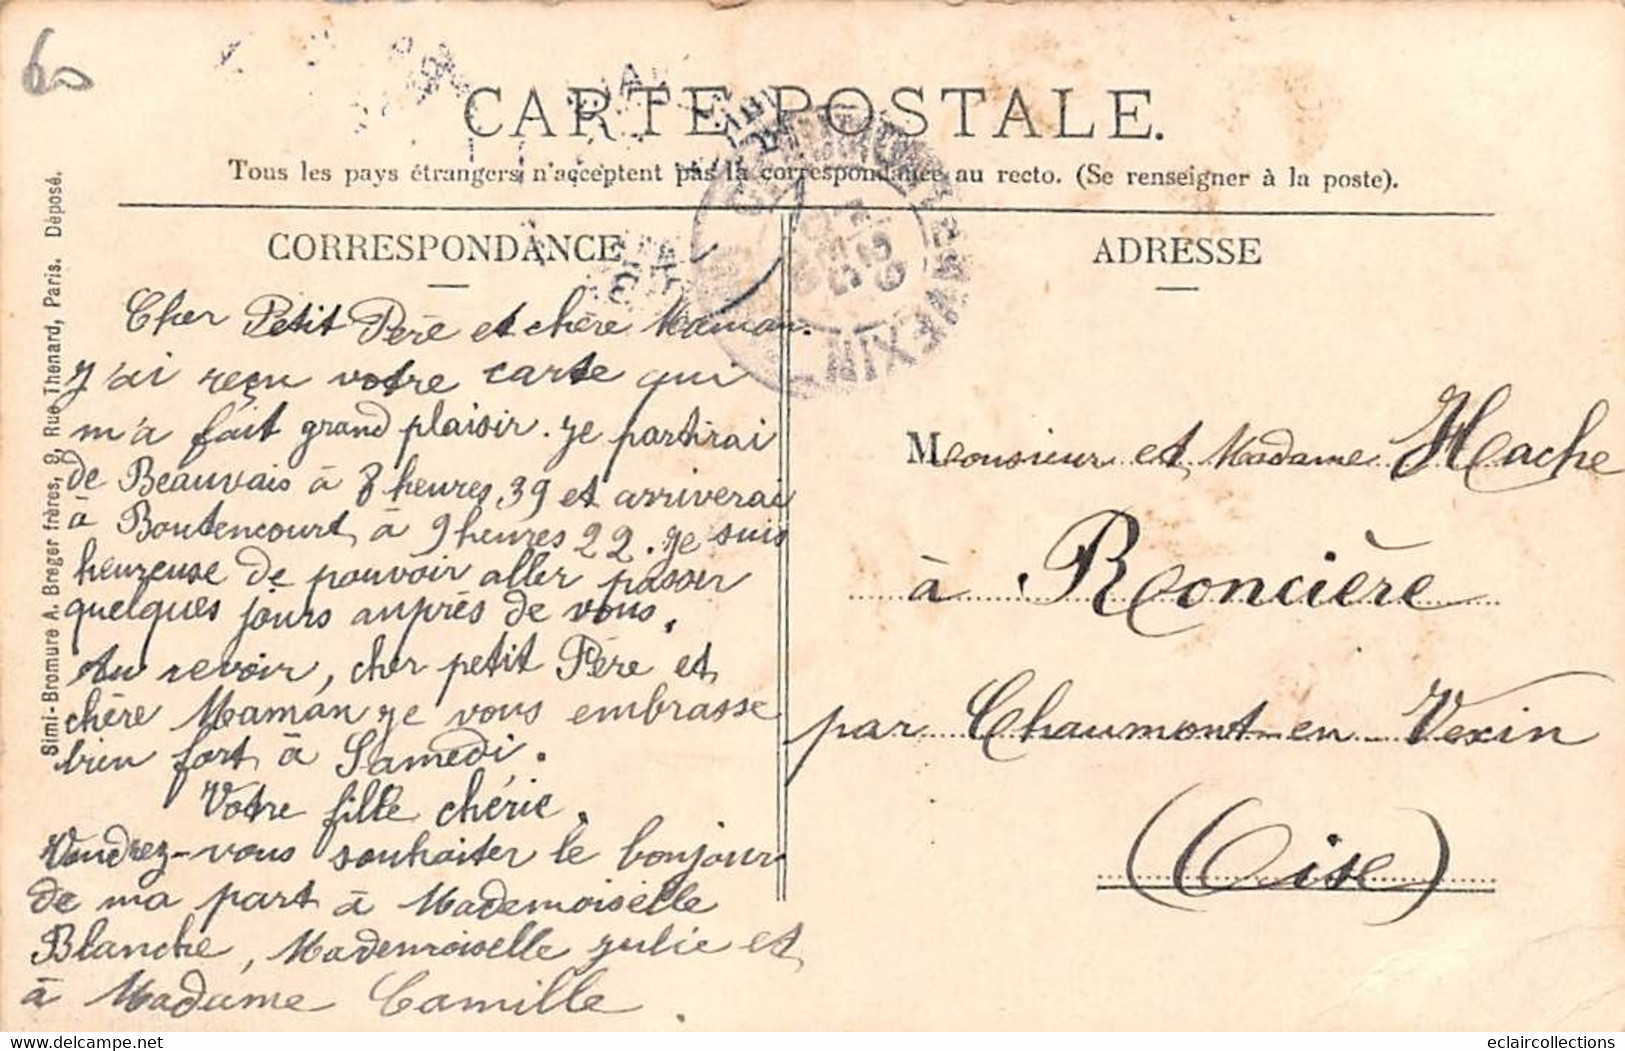 60
CARTE POSTALE.
Tous les pays étrangers n'acceptent pas la correspondance au recto. (Se renseigner à la poste).
CORRESPONDANCE
Cher Petit Père et chère Maman.
J'ai reçu votre carte qui
m'a fait grand plaisir. je partirai
de Beauvais à 8 heures 39 et arriverai
à Boutencourt à 9 heures 22. je suis
heureuse de pouvoir aller passer
quelques jours auprès de vous.
Au revoir, cher petit Père et
chère Maman je vous embrasse
bien fort à Samedi.
Votre fille chérie.
Voudrez-vous souhaiter le bonjour
de ma part à Mademoiselle
Blanche, Mademoiselle Julie et
à Madame Camille.
ADRESSE
Monsieur et Madame Hache
à Roncière
par Chaumont-en-Vexin
(Oise)
Simi-Bromure A. Breger frères, 9, Rue Thenard, Paris. Déposé.
VEXIN
eclaircollections